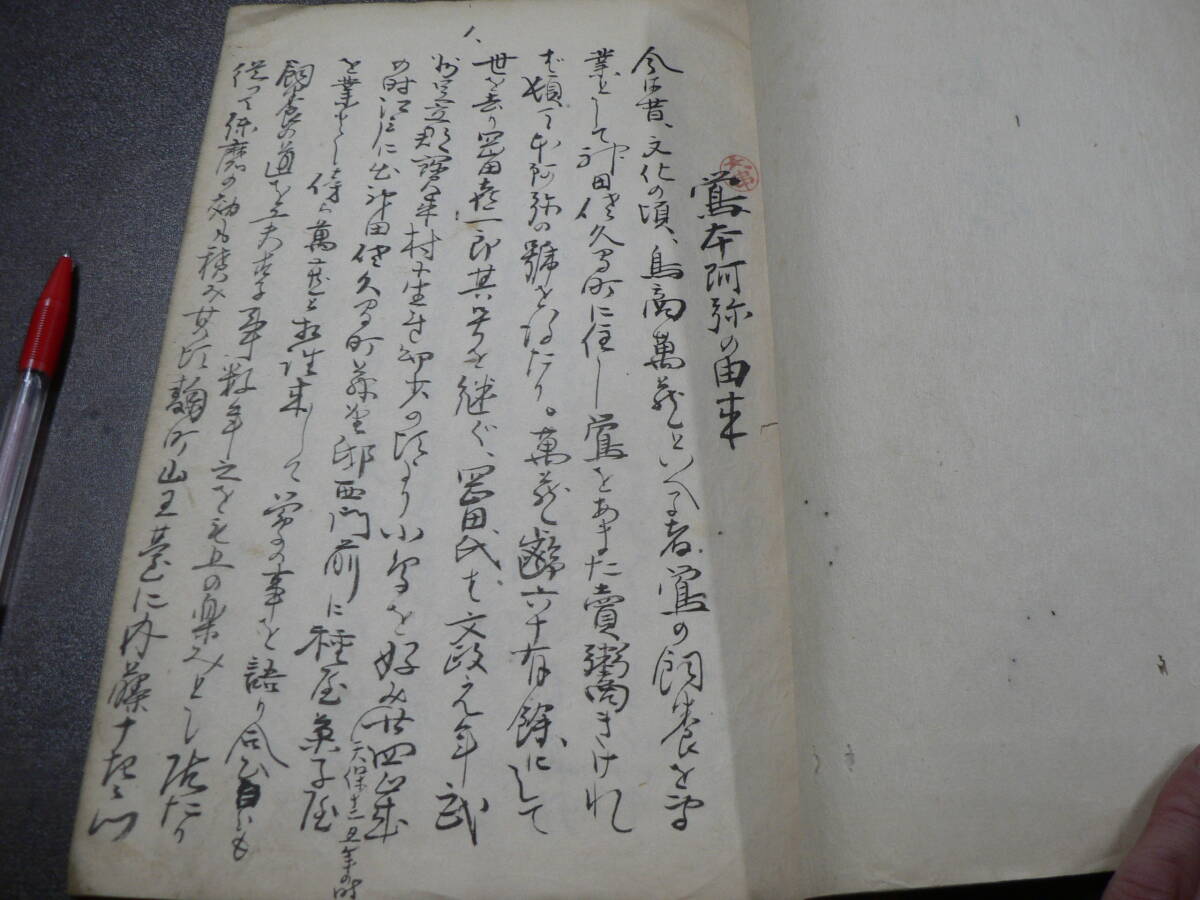 鶯本阿弥の由来
今は昔、文化の頃、鳥商萬蔵といへる者、鶯の飼養を専
業として神田佐久間町に住し鶯をあまた賣鬻きけれ
ば頓て本阿弥の號を得たり。萬蔵齢六十有餘にして
世を去り岡田喜一郎其号を継ぐ、岡田氏は文政元年武
州足立郡 村 産 幼少の頃より小鳥を好み廿四歳
の時江戸に出神田佐久間町藤堂邸西門前に種屋菓子屋
(天保十二丑年の時
を業とし傍ら萬蔵と 往来して鶯の事を語り合自らも
飼養の道を工夫する事数年之を無上の楽みとし居たり
従って練磨の効も積み其頃麹町山王臺に内藤十右衛門